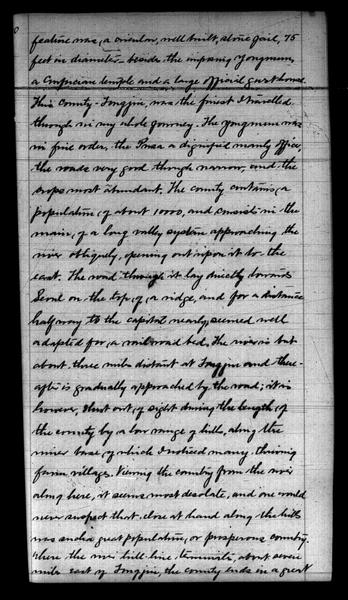 feature was, a circular, well built, stone jail, 75
feet in diameter - beside the imposing Yongmun,
a Confucian temple and a large official guest house.
This County - Tongjin, was the finest I travelled
through in my whole journey. The yongmun was
in fine order, the Pusa a dignified manly officer,
the roads very good though narrow, and the
crops most abundant. The county contains, a
population, of about 1000, and consists in the
main, of a long valley system approaching the
river obliquely, opening out upon it to the
east. The road through it lay directly towards
Seoul on the top, of, a ridge, and for a distance
half way to the capital nearly, seemed well
adapted for, a railroad bed. The river is but
about three miles distant at Tongjin and there-
after is gradually approached by the road; it is
however, shut out, of sight during the length, of
the county by a low range of hills, along the
river base, of which I noticed many, thriving
farm villages. Viewing the country from the river
along here, it seems most desolate, and one would
never suspect that, close at hand along the hills
was such a great population, or prosperous country.
Where the river hill-line terminates, about seven
miles east of Tongjin, the county ends in a great